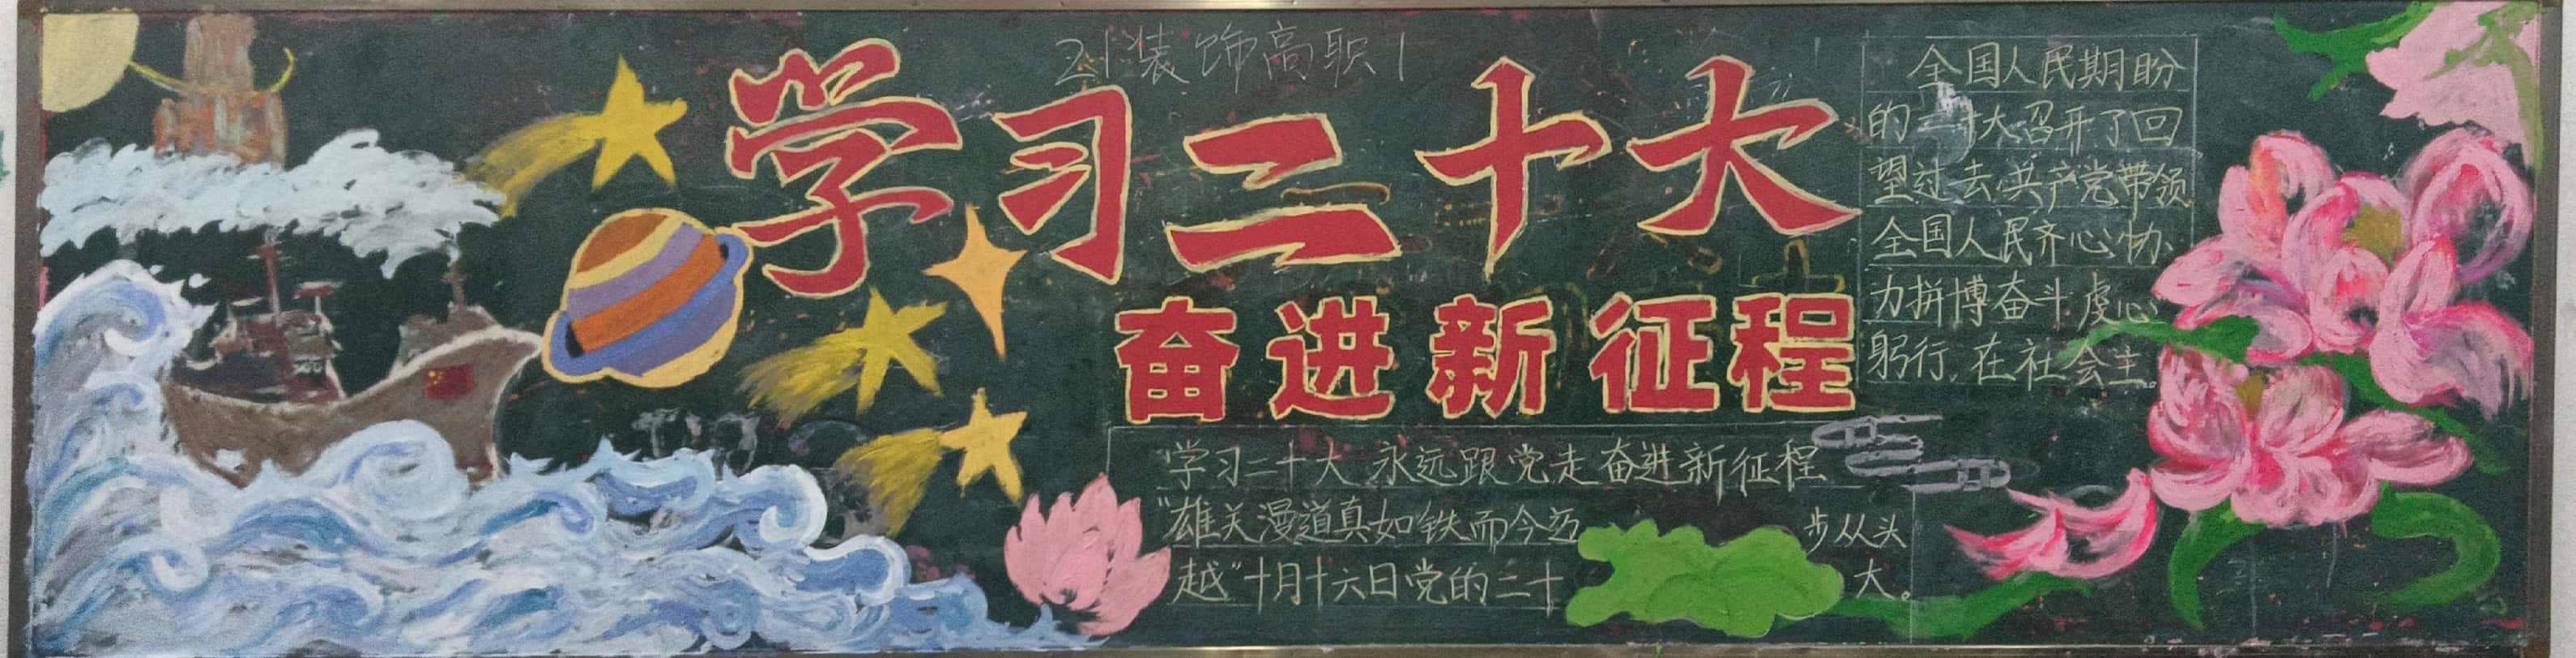 21装饰高职1
学习二十大
奋进新征程
全国人民期盼
的二十大召开了回
望过去共产党带领
全国人民齐心协
力拼博奋斗虚心
躬行,在社会主。
学习二十大 永远跟党走奋进新征程
"雄关漫道真如铁而今迈步从头
越"十月十六日党的二十大。